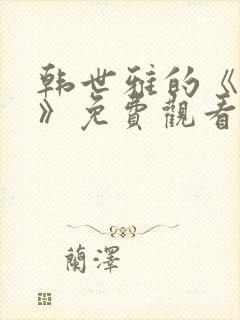 韩世雅的《
》免費觀看
蘭澤